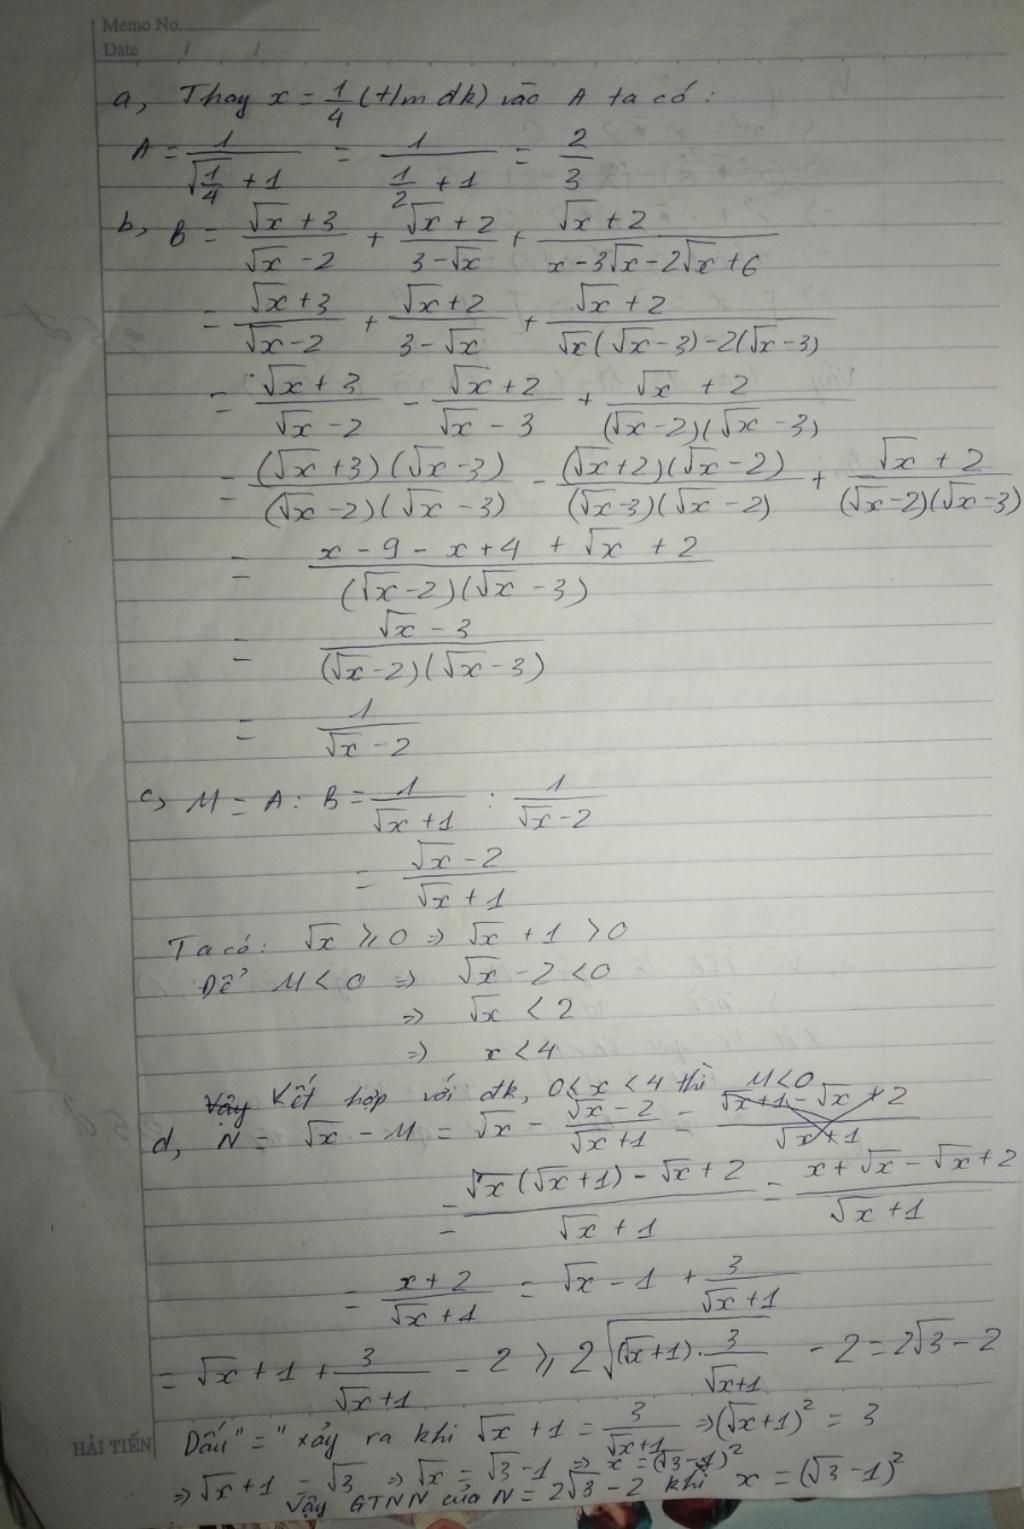 Memo No.
Date / /
a, Thay x = 1/4 (t/m đk) vào A ta có:
A = 1/(√(1/4) + 1) = 1/(1/2 + 1) = 2/3
b, B = (√x + 3)/(√x - 2) + (√x + 2)/(3 - √x) + (√x + 2)/(x - 3√x - 2√x + 6)
= (√x + 3)/(√x - 2) + (√x + 2)/(3 - √x) + (√x + 2)/(√x(√x - 3) - 2(√x - 3))
= (√x + 3)/(√x - 2) - (√x + 2)/(√x - 3) + (√x + 2)/((√x - 2)(√x - 3))
= (√x + 3)(√x - 3)/((√x - 2)(√x - 3)) - (√x + 2)(√x - 2)/((√x - 3)(√x - 2)) + (√x + 2)/((√x - 2)(√x - 3))
= (x - 9 - x + 4 + √x + 2)/((√x - 2)(√x - 3))
= (√x - 3)/((√x - 2)(√x - 3))
= 1/(√x - 2)
c, M = A : B = 1/(√x + 1) : 1/(√x - 2)
= (√x - 2)/(√x + 1)
Ta có: √x ⩾ 0 => √x + 1 > 0
Để M < 0 => √x - 2 < 0
=> √x < 2
=> x < 4
Vậy Kết hợp với đk, 0 ≤ x < 4 thì M < 0
d, N = √x - M = √x - (√x - 2)/(√x + 1) = (√x + 1 - √x + 2)/(√x + 1)
= (√x(√x + 1) - √x + 2)/(√x + 1) = (x + √x - √x + 2)/(√x + 1)
= (x + 2)/(√x + 1) = √x - 1 + 3/(√x + 1)
= √x + 1 + 3/(√x + 1) - 2 ⩾ 2√((√x + 1) · 3/(√x + 1)) - 2 = 2√3 - 2
Dấu "=" xảy ra khi √x + 1 = 3/(√x + 1) => (√x + 1)² = 3
=> √x + 1 = √3 => √x = √3 - 1 => x = (√3 - 1)²
Vậy GTNN của N = 2√3 - 2 khi x = (√3 - 1)²
HẢI TIẾN